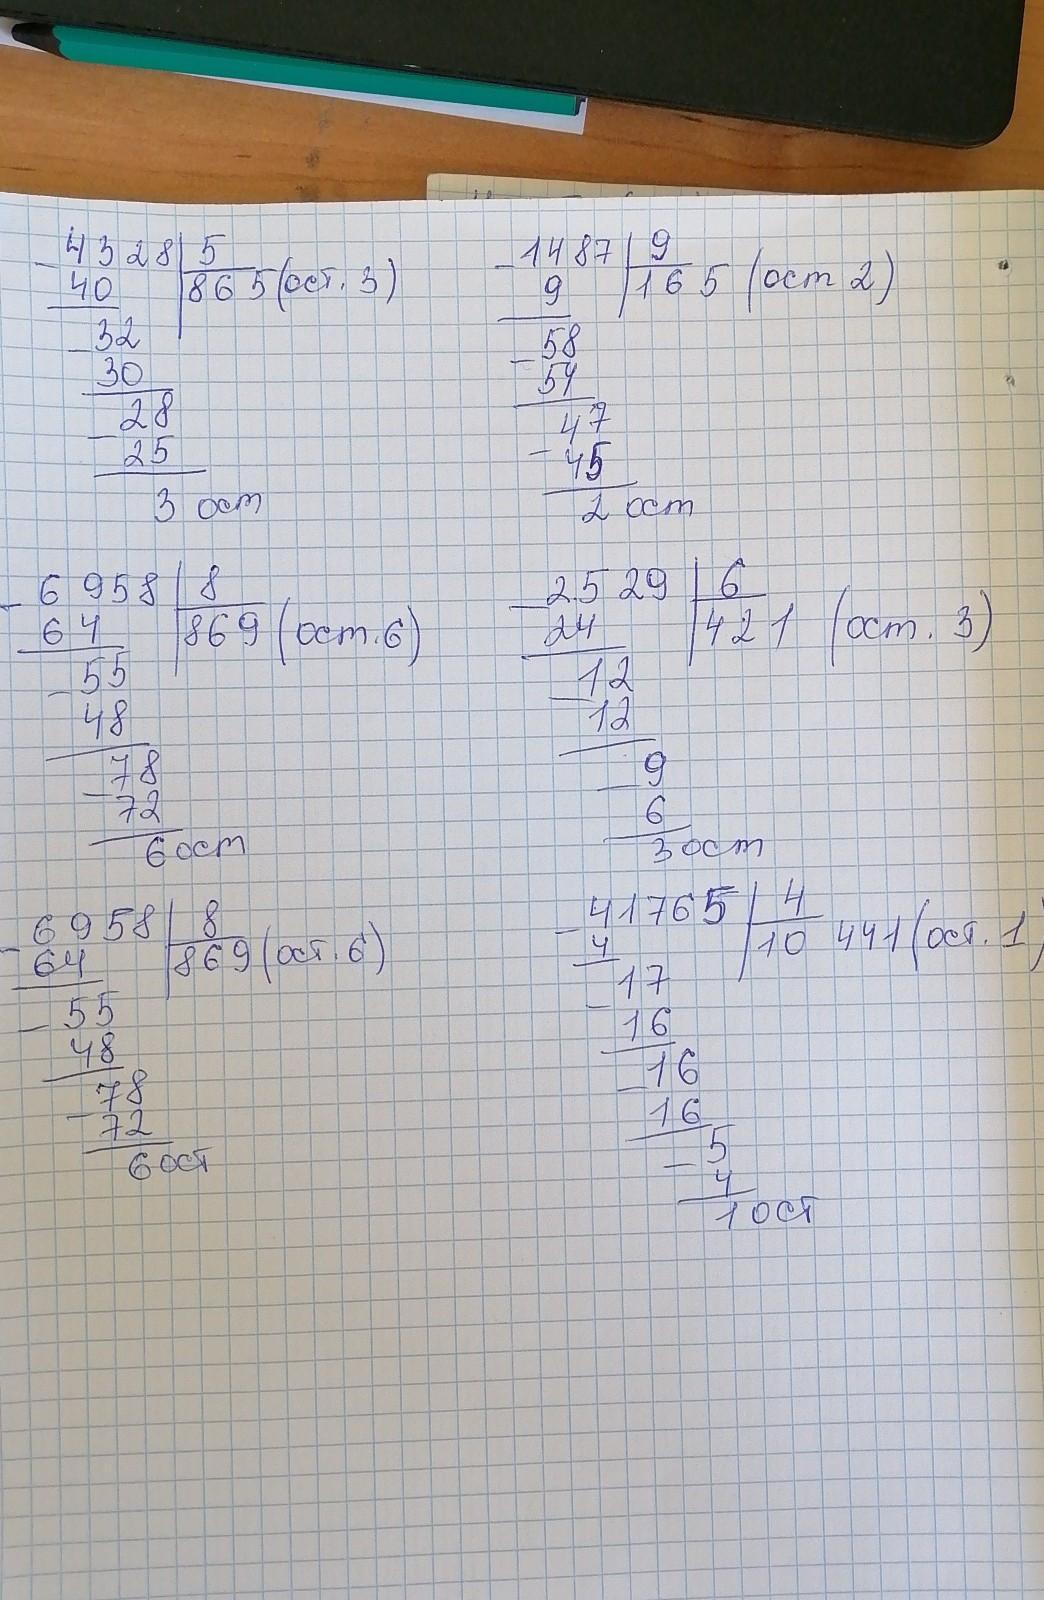 4328 5
40 865 (ост. 3)
32
30
28
25
3 ост
1487 9
9 165 (ост 2)
58
54
47
45
2 ост
6958 8
64 869 (ост. 6)
55
48
78
72
6 ост
2529 6
24 421 (ост. 3)
12
12
9
6
3 ост
6958 8
64 869 (ост. 6)
55
48
78
72
6 ост
41765 4
4 10 441 (ост. 1)
17
16
16
16
5
4
1 ост